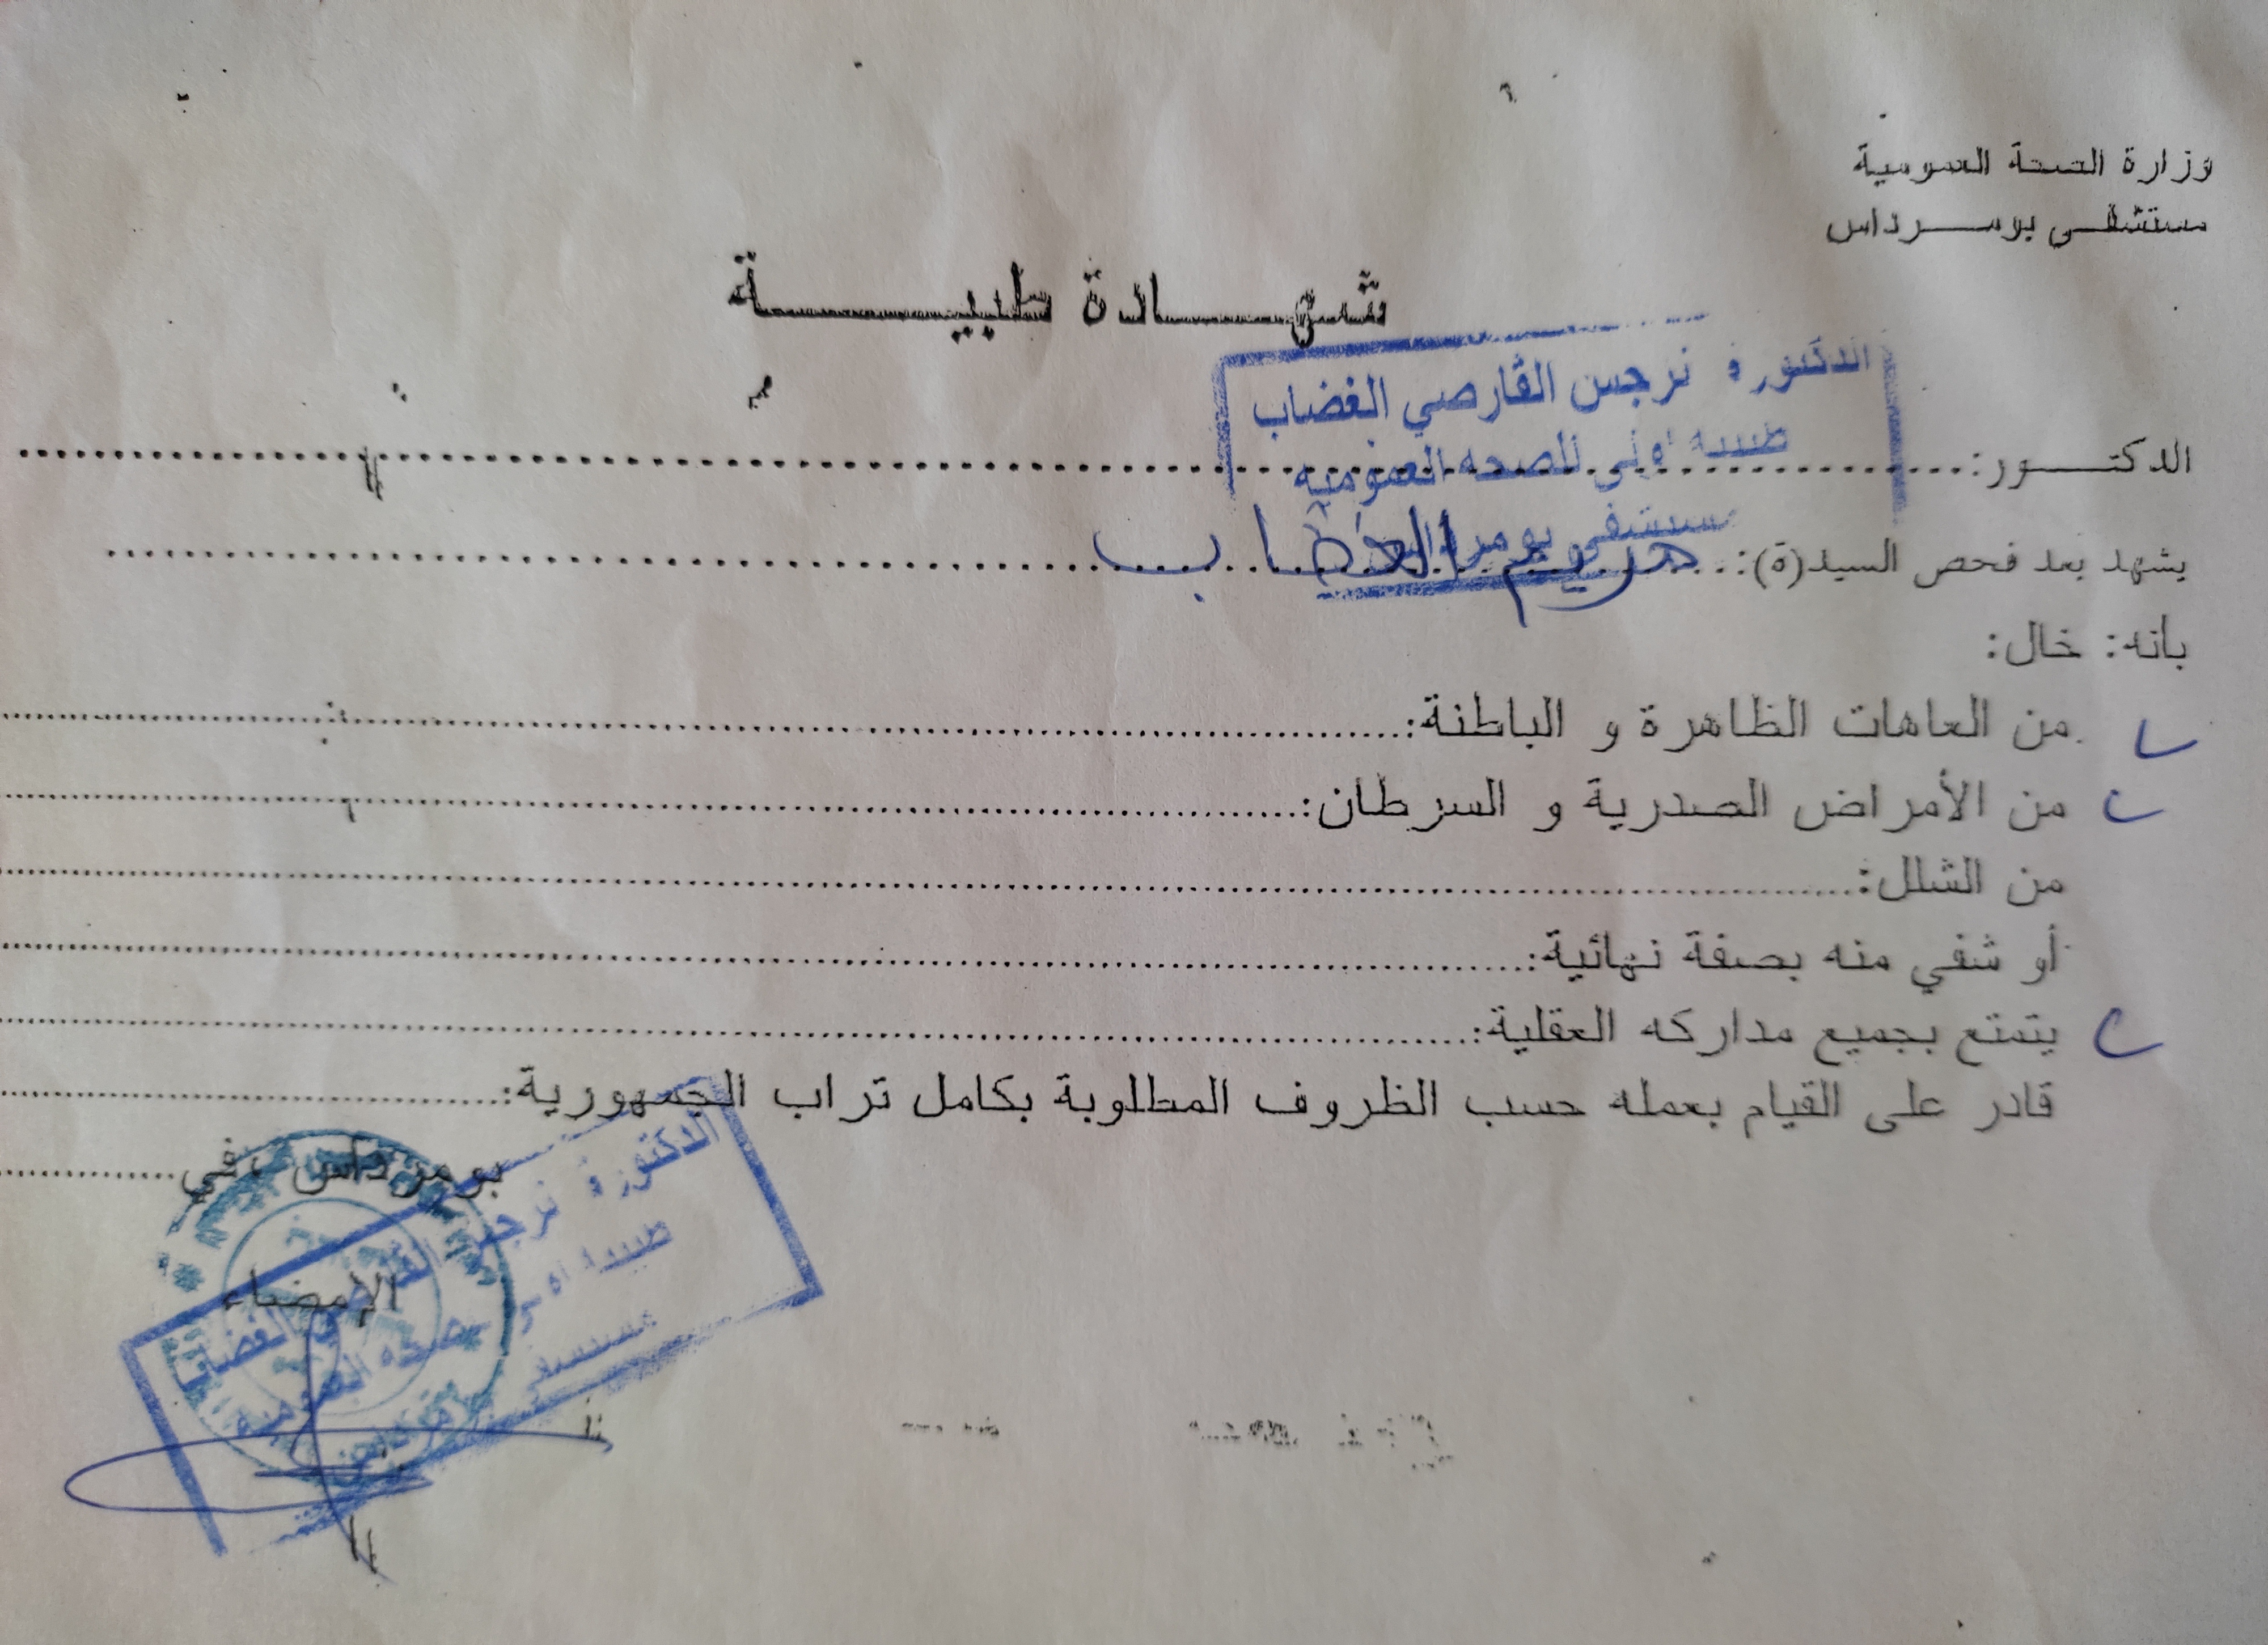 وزارة الصحة العمومية
مستشفى بومرداس
شهادة طبية
الدكتورة نرجس القارصي الغضاب
طبيبة اولى للصحة العمومية
مستشفى بومرداس
الدكتور:
يشهد بعد فحص السيد(ة): مريم
بانه: خال:
من العاهات الظاهرة و الباطنة:
من الأمراض الصدرية و السرطان:
من الشلل:
أو شفي منه بصفة نهائية:
يتمتع بجميع مداركه العقلية:
قادر على القيام بعمله حسب الظروف المطلوبة بكامل تراب الجمهورية:
بومرداس في
الإمضاء
الدكتورة نرجس القارصي الغضاب